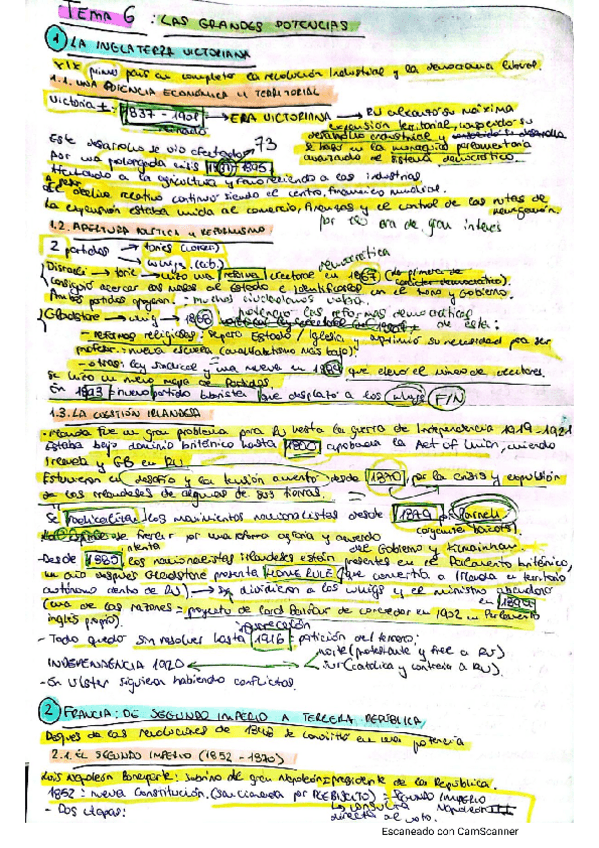 TEMA 6 : LAS GRANDES POTENCIAS
1 LA INGLATERRA VICTORIANA
XIX primer país en completar la revolución Industrial y la democracia liberal.
1.1. UNA POTENCIA ECONÓMICA Y TERRITORIAL
Victoria I: 1837 - 1901 → ERA VICTORIANA → RU alcanzó su máxima
reinado
expansión territorial,
desarrollo industrial y
se basó en la parlamentaria
avanzado de sistema democrático.
Este desarrollo se vio afectado 73
por una prolongada crisis - 1895
Afectando a la agricultura y favoreciendo a las industrias.
A pesar
del declive relativo continuó siendo el centro financiero mundial.
La expansión estaba unida al comercio, finanzas y el control de las rutas de
navegación.
por eso era de gran interés
1.2. APERTURA POLÍTICA Y REFORMISMO
2 partidos → tories (conser.)
→ whigs (lib.)
democrática
Disraeli → torie → hizo una reforma electoral en 1867 (la primera de
carácter democrático).
Consiguió acercar las masas al Estado e identificarlas con el trono y Gobierno.
Ambos partidos : muchos ciudadanos votara.
Gladstone → whig → 1868 potenció las reformas democráticas
de esta:
- reformas religiosas: separó Estado / Iglesia y suprimió su necesidad para ser
profesor: nueva escuela (analfabetismo más bajo).
- otras: ley sindical y una nueva en que elevó el número de electores.
Se hizo un nuevo mapa de partidos.
En 1893 : nuevo partido laborista que desplazó a los whigs F/N
1.3. LA CUESTIÓN IRLANDESA
- Irlanda fue un gran problema para RU hasta la guerra de Independencia 1919 - 1921
Estaba bajo dominio británico hasta 1800 aprobada la Act of Union, uniendo
Irlanda y GB en RU
Estuvieron en desafío y la tensión aumentó desde 1870, por la crisis y expulsión
de los irlandeses de algunas de sus tierras.
Se radicalizan los movimientos nacionalistas desde 1879 por Parnell
de frenar por una reforma agraria y acuerdo
intenta
del Gobierno y Kilmainham.
- Desde 1885 los nacionalistas irlandeses están presentes en el Parlamento británico,
un año después Gladstone presenta HOME RULE (que convertía a Irlanda en territorio
autónomo dentro de RU) → Se dividieron a los whigs y el ministro abandonó
en
(una de las razones = proyecto de Lord Balfour de conceder en 1902 un Parlamento
inglés propio).
- Todo quedó sin resolver hasta 1916 = partición del terreno:
norte (protestante y fiel a RU)
INDEPENDENCIA 1920
sur (católica y contraria a RU).
- En Ulster siguieron habiendo conflictos.
2 FRANCIA: DE SEGUNDO IMPERIO A TERCERA REPÚBLICA
Después de las revoluciones de 1848 se convirtió en una potencia
2.1. EL SEGUNDO IMPERIO (1852 - 1870)
Luis Napoleón Bonaparte: sobrino del gran Napoleón = presidente de la República.
1852: nueva Constitución. (sancionada por PLEBISCITO) = SEGUNDO IMPERIO
Napoleón III
La consulta
directa al voto.
- Dos etapas:
Escaneado con CamScanner